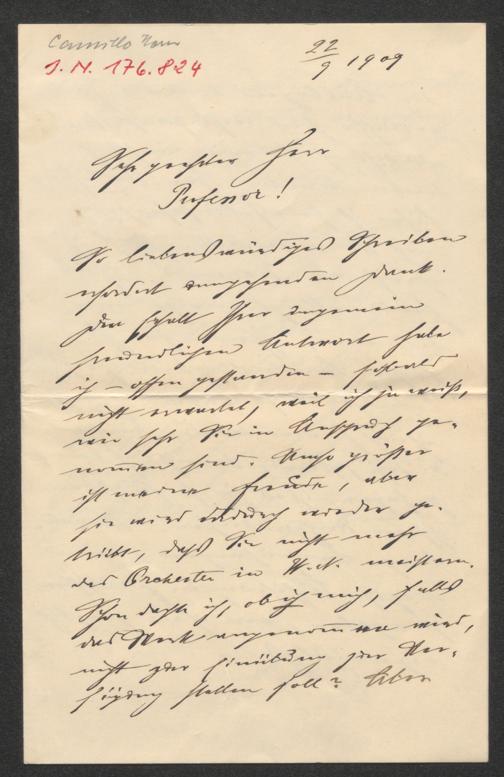 Camillo Horn
I. N. 176.824
22/9 1909
Sehr geehrter Herr
Professor!
So liebenswürdiges Schreiben
erfordert umgehenden Dank.
Den Erhalt Ihrer ungemein
freundlichen Antwort habe
ich – offen gestanden – sobald
nicht erwartet, weil ich ja weiß,
wie sehr Sie in Anspruch ge-
nommen sind. Umso größer
ist meine Freude, aber
sie wird dadurch wieder ge-
trübt, daß Sie nicht mehr
das Orchester in W.-N. meistern.
Schon dachte ich, ob ich mich, falls
das Werk angenommen wird,
nicht zur Einübung zur Ver-
fügung stellen soll? Aber